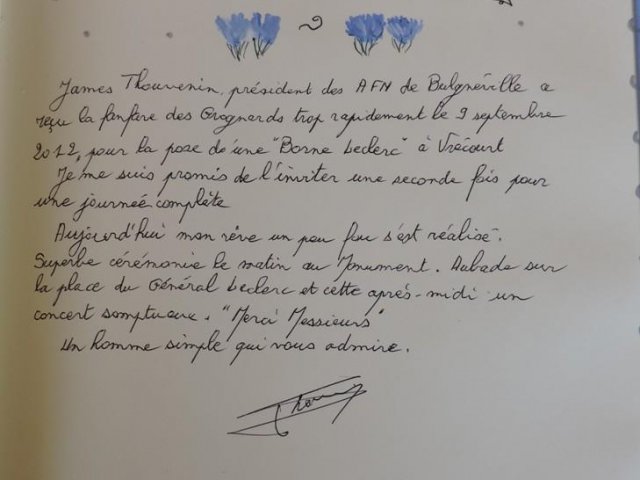 James Thouvenin, président des AFN de Bulgnéville a
reçu la fanfare des Grognards trop rapidement le 9 septembre
2012, pour la pose d'une "Borne Leclerc" à Vrécourt
Je me suis promis de l'inviter une seconde fois pour
une journée complète
Aujourd'hui mon rêve un peu fou s'est réalisé.
Superbe cérémonie le matin au Monument. Aubade sur
la place du Général Leclerc et cette après-midi un
concert somptueux. "Merci Messieurs"
Un homme simple qui vous admire.